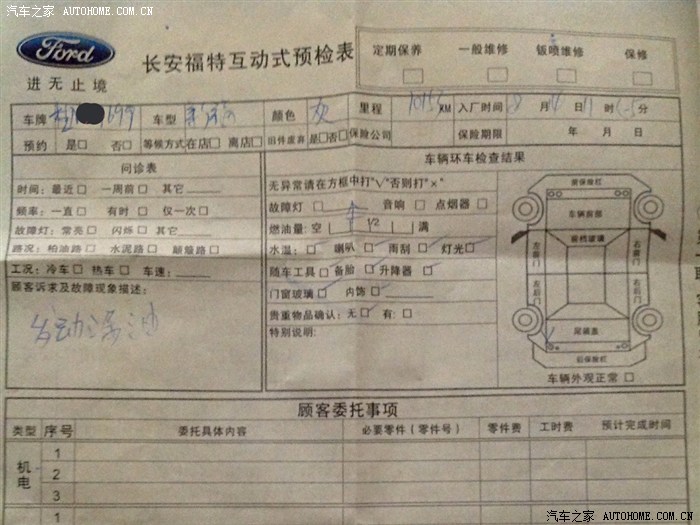 汽车之家 AUTOHOME.COM.CN
Ford
进无止境
长安福特互动式预检表
定期保养 一般维修 钣喷维修 保修
车牌 车型 颜色 灰 里程 KM 入厂时间 月 日 时 分
预约 是□ 否□ 等候方式 在店□ 离店□ 旧件废弃 是□否□ 保险公司 保险期限 年 月 日
问诊表
时间：最近□ 一周前□ 其它
频率：一直□ 有时□ 仅一次□
故障灯：常亮□ 闪烁□ 其它
路况：柏油路□ 水泥路□ 颠簸路□
工况：冷车□ 热车□ 车速：
顾客诉求及故障现象描述：
发动漆油
车辆环车检查结果
无异常请在方框中打"√"否则打"×"
故障灯□ 音响□ 点烟器□
燃油量：空 1/2 满
水温：□ 喇叭□ 雨刮□ 灯光□
随车工具□ 备胎□ 升降器□
门窗玻璃□ 内饰□
贵重物品确认：无□ 有：□
特别说明：
前保险杠
车辆前部
前档玻璃
左前门
右前门
左后门
右后门
尾箱盖
后保险杠
车辆外观正常□
顾客委托事项
类型 序号 委托具体内容 必要零件（零件号） 零件费 工时费 预计完成时间
机电
1
2
3
1
汽车之家 AUTOHOME.COM.CN